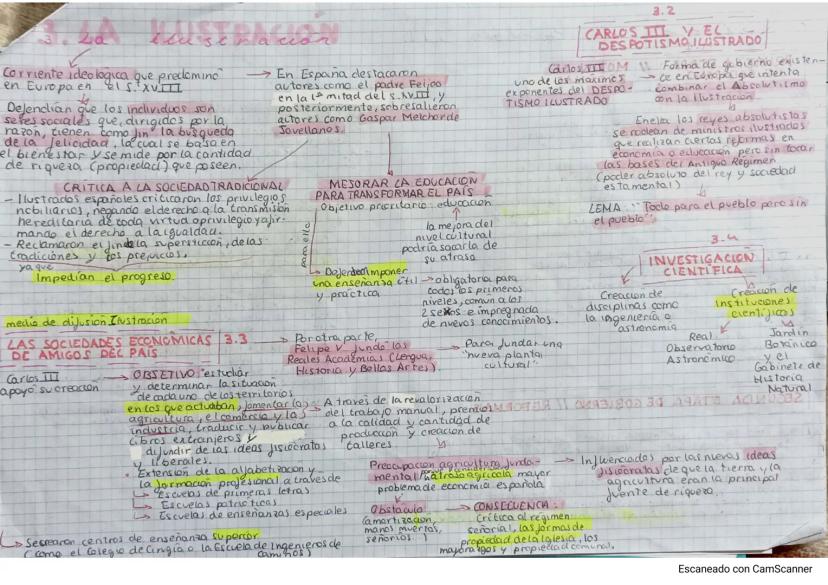 3. La Ilustración
Corriente ideológica que predominó
en Europa en el S. XVIII
Defendían que los individuos son
seres sociales que, dirigidos por la
razón, tienen como fin la búsqueda
de la felicidad, la cual se basa en
el bienestar y se mide por la cantidad
de riqueza (propiedad) que poseen.
En España destacaron
autores como el padre Feijoo
en la 1ª mitad del s. XVIII, y
posteriormente, sobresalieron
autores como Gaspar Melchor de
Jovellanos.
CRÍTICA A LA SOCIEDAD TRADICIONAL
- Ilustrados españoles criticaron los privilegios
nobiliarios, negando el derecho a la transmisión
hereditaria de toda virtud o privilegio y afir-
mando el derecho a la igualdad.
- Reclamaron el fin de la superstición, de las
tradiciones y los prejuicios.
ya que
Impedían el progreso
MEJORAR LA EDUCACIÓN
PARA TRANSFORMAR EL PAÍS
Objetivo prioritario: educación
la mejora del
nivel cultural
podría sacarla de
su atraso
para ello
Defendió imponer
una enseñanza útil
y práctica
obligatoria para
todos los primeros
niveles, común a los
2 sexos e impregnada
de nuevos conocimientos.
3.2
CARLOS III Y EL
DESPOTISMO ILUSTRADO
Carlos III
uno de los máximos
exponentes del DESPO-
TISMO ILUSTRADO
Forma de gobierno existen-
te en Europa que intenta
combinar el Absolutismo
con la Ilustración
En ella los reyes absolutistas
se rodean de ministros ilustrados
que realizan ciertas reformas en
economía o educación pero sin tocar
las bases del Antiguo Régimen
(poder absoluto del rey y sociedad
estamental)
LEMA: "Todo para el pueblo pero sin
el pueblo"
3.4
INVESTIGACIÓN
CIENTÍFICA
Creación de
disciplinas como
la ingeniería o
astronomía
Creación de
instituciones
científicas
Real
Observatorio
Astronómico
Jardín
Botánico
y el
Gabinete de
Historia
Natural
medio de difusión Ilustración
LAS SOCIEDADES ECONÓMICAS
DE AMIGOS DEL PAÍS
3.3
Carlos III
apoyó su creación
OBJETIVO: estudiar
y determinar la situación
de cada uno de los territorios
en los que actuaban, fomentar la
agricultura, el comercio y la
industria, traducir y publicar
libros extranjeros y
difundir de las ideas fisiócratas
y liberales.
Extensión de la alfabetización y
la formación profesional a través de
Escuelas de primeras letras
Escuelas patrióticas
Escuelas de enseñanzas especiales
Se crearon centros de enseñanza superior
(como el Colegio de Cirugía o la Escuela de Ingenieros de
Caminos)
Por otra parte,
Felipe V fundó las
Reales Academias (Lengua,
Historia y Bellas Artes).
Para fundar una
"nueva planta
cultural"
A través de la revalorización
del trabajo manual, premios
a la calidad y cantidad de
producción y creación de
talleres
Preocupación agricultura funda-
mental / atraso agrícola mayor
problema de economía española
Influenciados por las nuevas ideas
fisiócratas de que la tierra y la
agricultura eran la principal
fuente de riqueza.
Obstáculo
(amortización,
manos muertas,
señoríos
CONSECUENCIA:
Crítica al régimen
señorial, las formas de
propiedad de la Iglesia, los
mayorazgos y propiedad comunal.
Escaneado con CamScanner